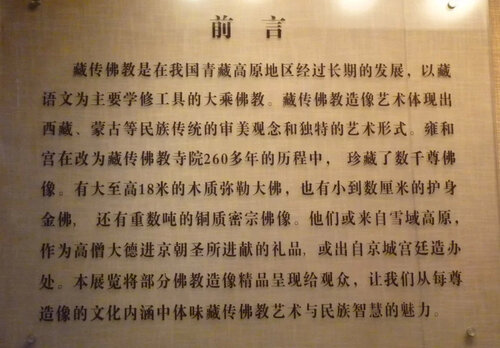 前 言
藏传佛教是在我国青藏高原地区经过长期的发展，以藏
语文为主要学修工具的大乘佛教。藏传佛教造像艺术体现出
西藏、蒙古等民族传统的审美观念和独特的艺术形式。雍和
宫在改为藏传佛教寺院260多年的历程中， 珍藏了数千尊佛
像。有大至高18米的木质弥勒大佛，也有小到数厘米的护身
金佛， 还有重数吨的铜质密宗佛像。他们或来自雪域高原，
作为高僧大德进京朝圣所进献的礼品，或出自京城宫廷造办
处。本展览将部分佛教造像精品呈现给观众，让我们从每尊
造像的文化内涵中体味藏传佛教艺术与民族智慧的魅力。